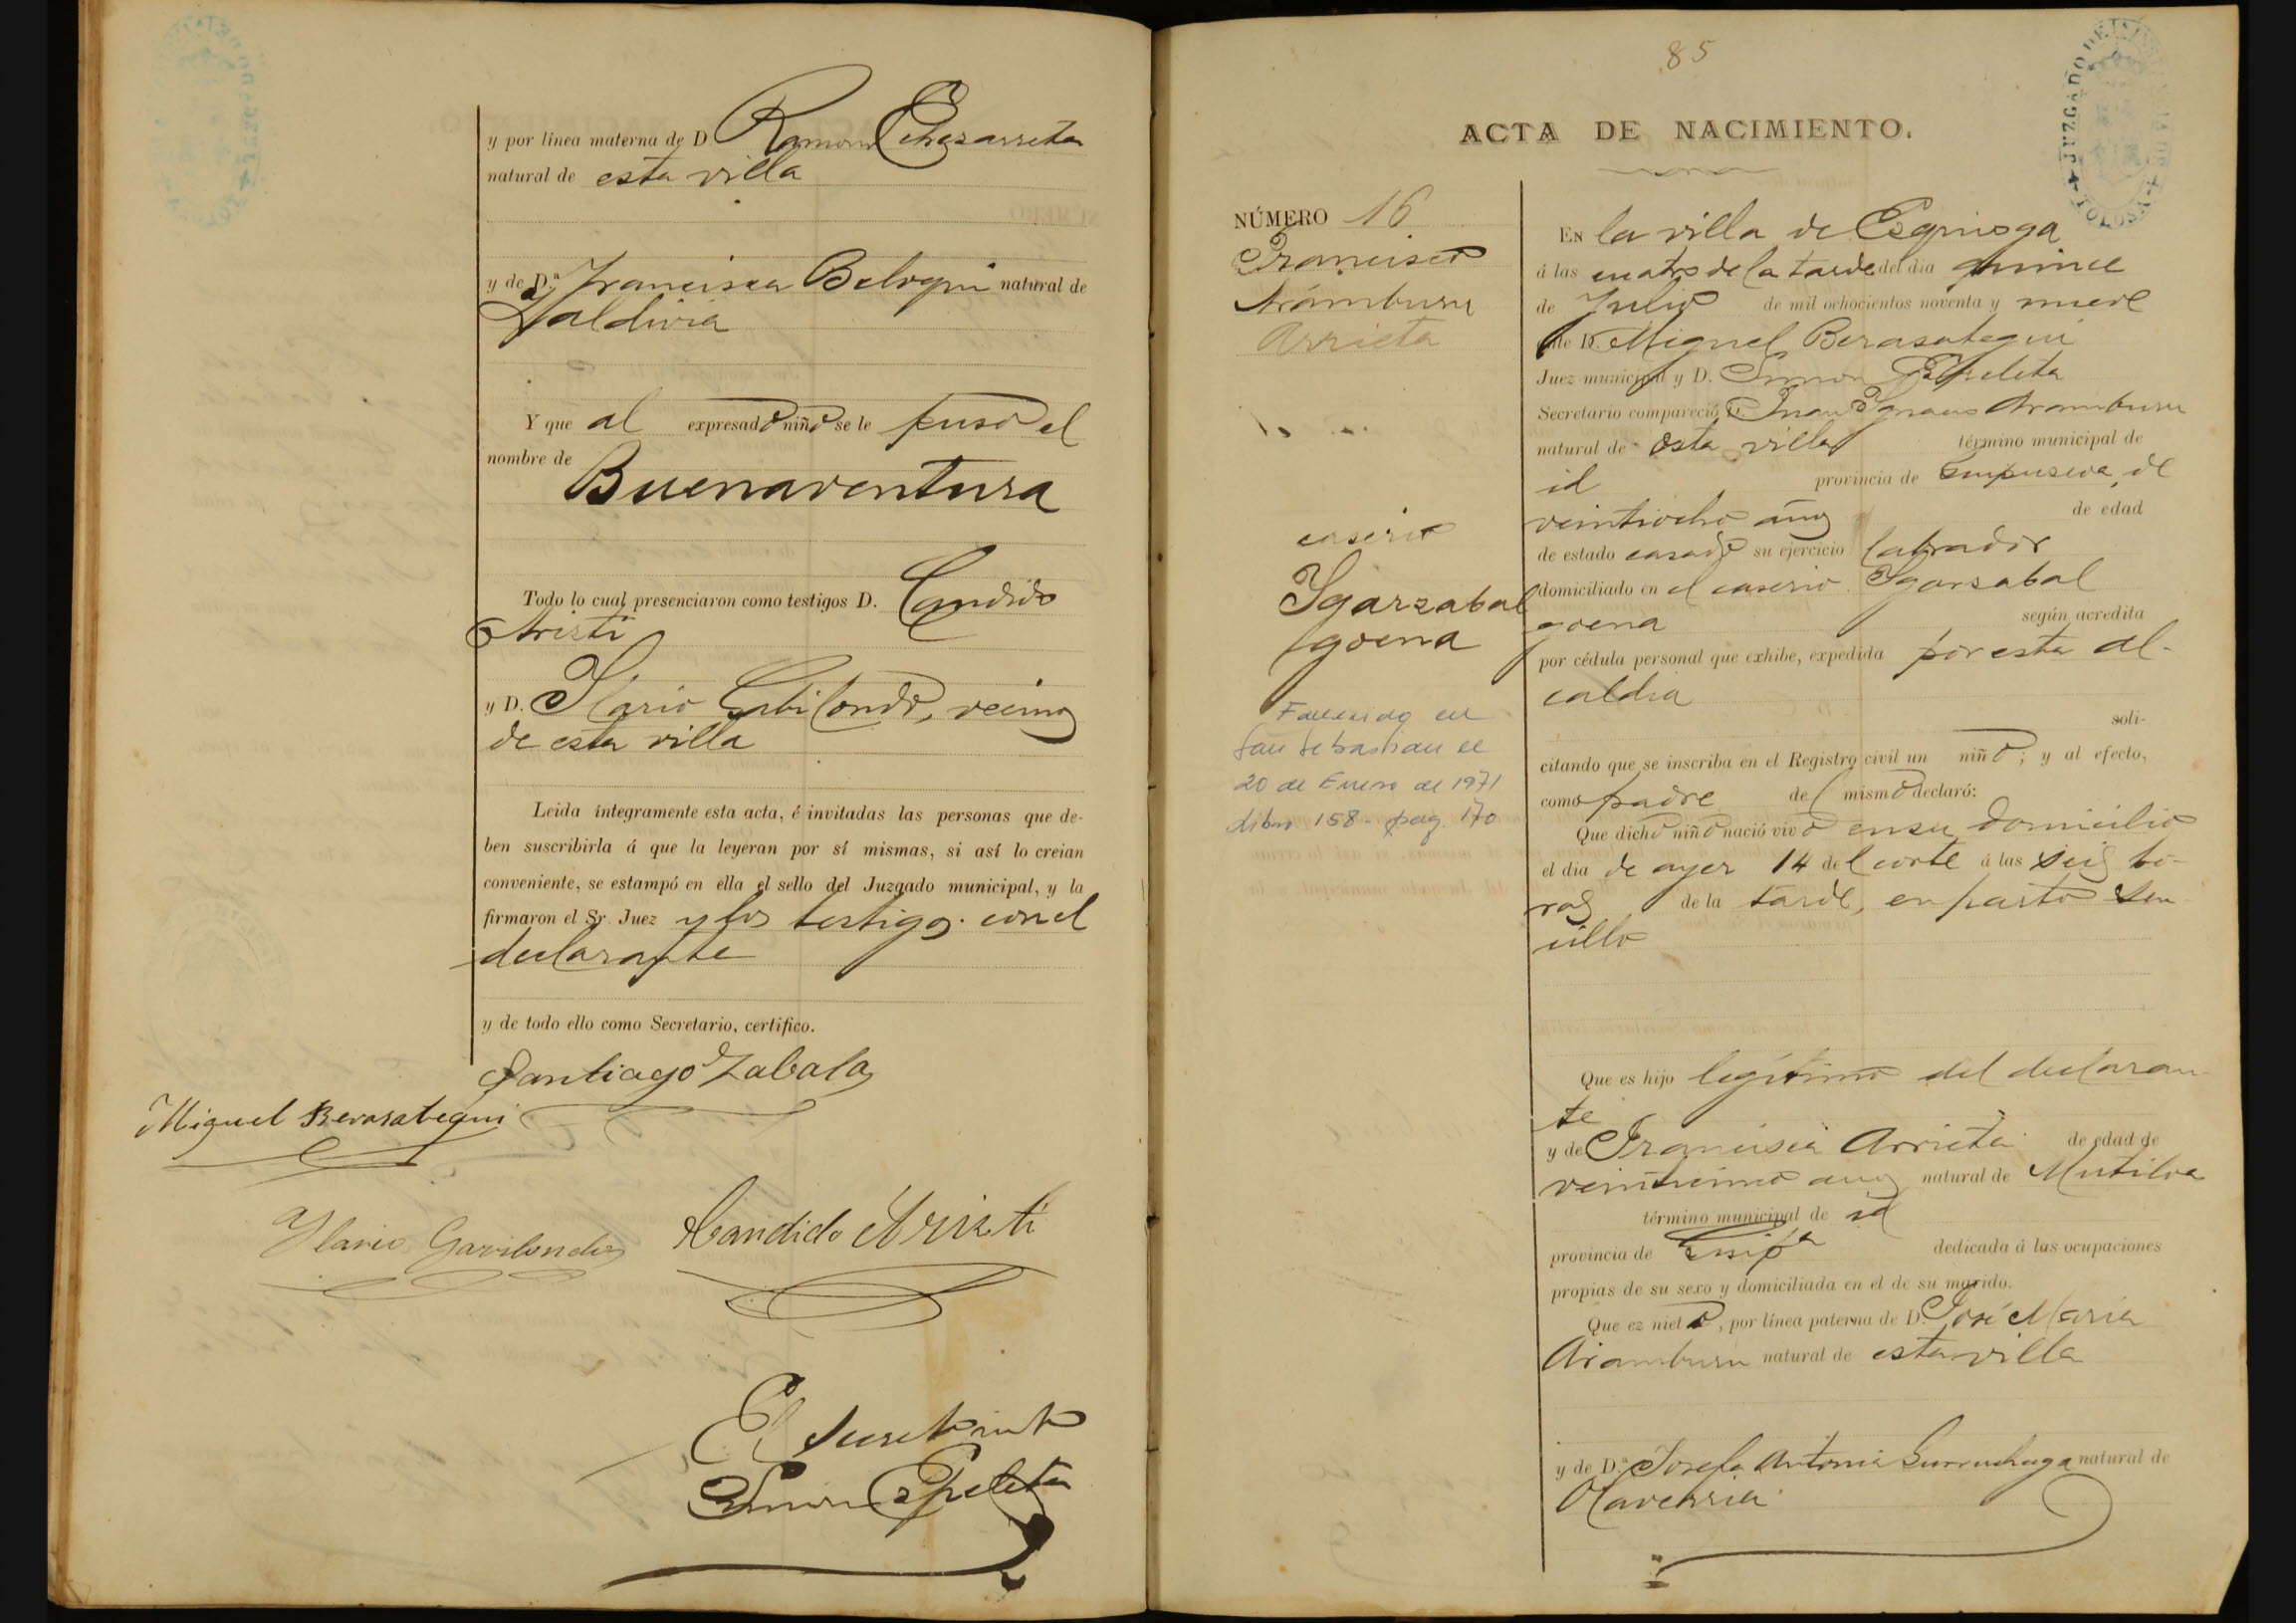 y por línea materna de D. Ramon Echezarreta
natural de esta villa
y de D.ª Francisca Beloqui natural de
Zaldivia
Y que al expresado niño se le puso el
nombre de
Buenaventura
Todo lo cual presenciaron como testigos D. Candido
Aristi
y D. Ilario Gabilondo, vecinos
de esta villa
Leida íntegramente esta acta, é invitadas las personas que de-
ben suscribirla á que la leyeran por sí mismas, si así lo creian
conveniente, se estampó en ella el sello del Juzgado municipal, y la
firmaron el Sr. Juez y los testigos con el
declarante
y de todo ello como Secretario, certifico.
Santiago Zabala
Miguel Berasategui
Ilario Gavilondo Candido Aristi
El Secretario
Simon Espeleta
85
ACTA DE NACIMIENTO.
JUZGADO DE TOLOSA
NÚMERO 16
Francisco
Arámburu
Arrieta
caserio
Igarzabal
goena
Fallecido en
San Sebastian el
20 de Enero de 1971
Libro 158 - pag. 170
En la villa de Ezquioga
á las cuatro de la tarde del dia quince
de Julio de mil ochocientos noventa y nueve
ante D. Miguel Berasategui
Juez municipal y D. Simon Espeleta
Secretario compareció D. Juan Ignacio Aramburu
natural de esta villa término municipal de
id provincia de Guipuscoa, de
veintiocho años de edad
de estado casado su ejercicio labrador
domiciliado en el caserio Igarsabal
goena según acredita
por cédula personal que exhibe, expedida por esta al-
caldia
soli-
citando que se inscriba en el Registro civil un niño; y al efecto,
como padre del mismo declaró:
Que dicho niño nació vivo en su domicilio
el dia de ayer 14 del corte á las seis ho-
ras de la tarde, en parto sen-
cillo
Que es hijo legítimo del declaran-
te
y de Francisca Arrieta de edad de
veinticinco años natural de Mutiloa
término municipal de id
provincia de Guipª dedicada á las ocupaciones
propias de su sexo y domiciliada en el de su marido.
Que ez nieto, por línea paterna de D. José Maria
Aramburu natural de esta villa
y de D.ª Josefa Antonia Surruchaga natural de
Olaverria